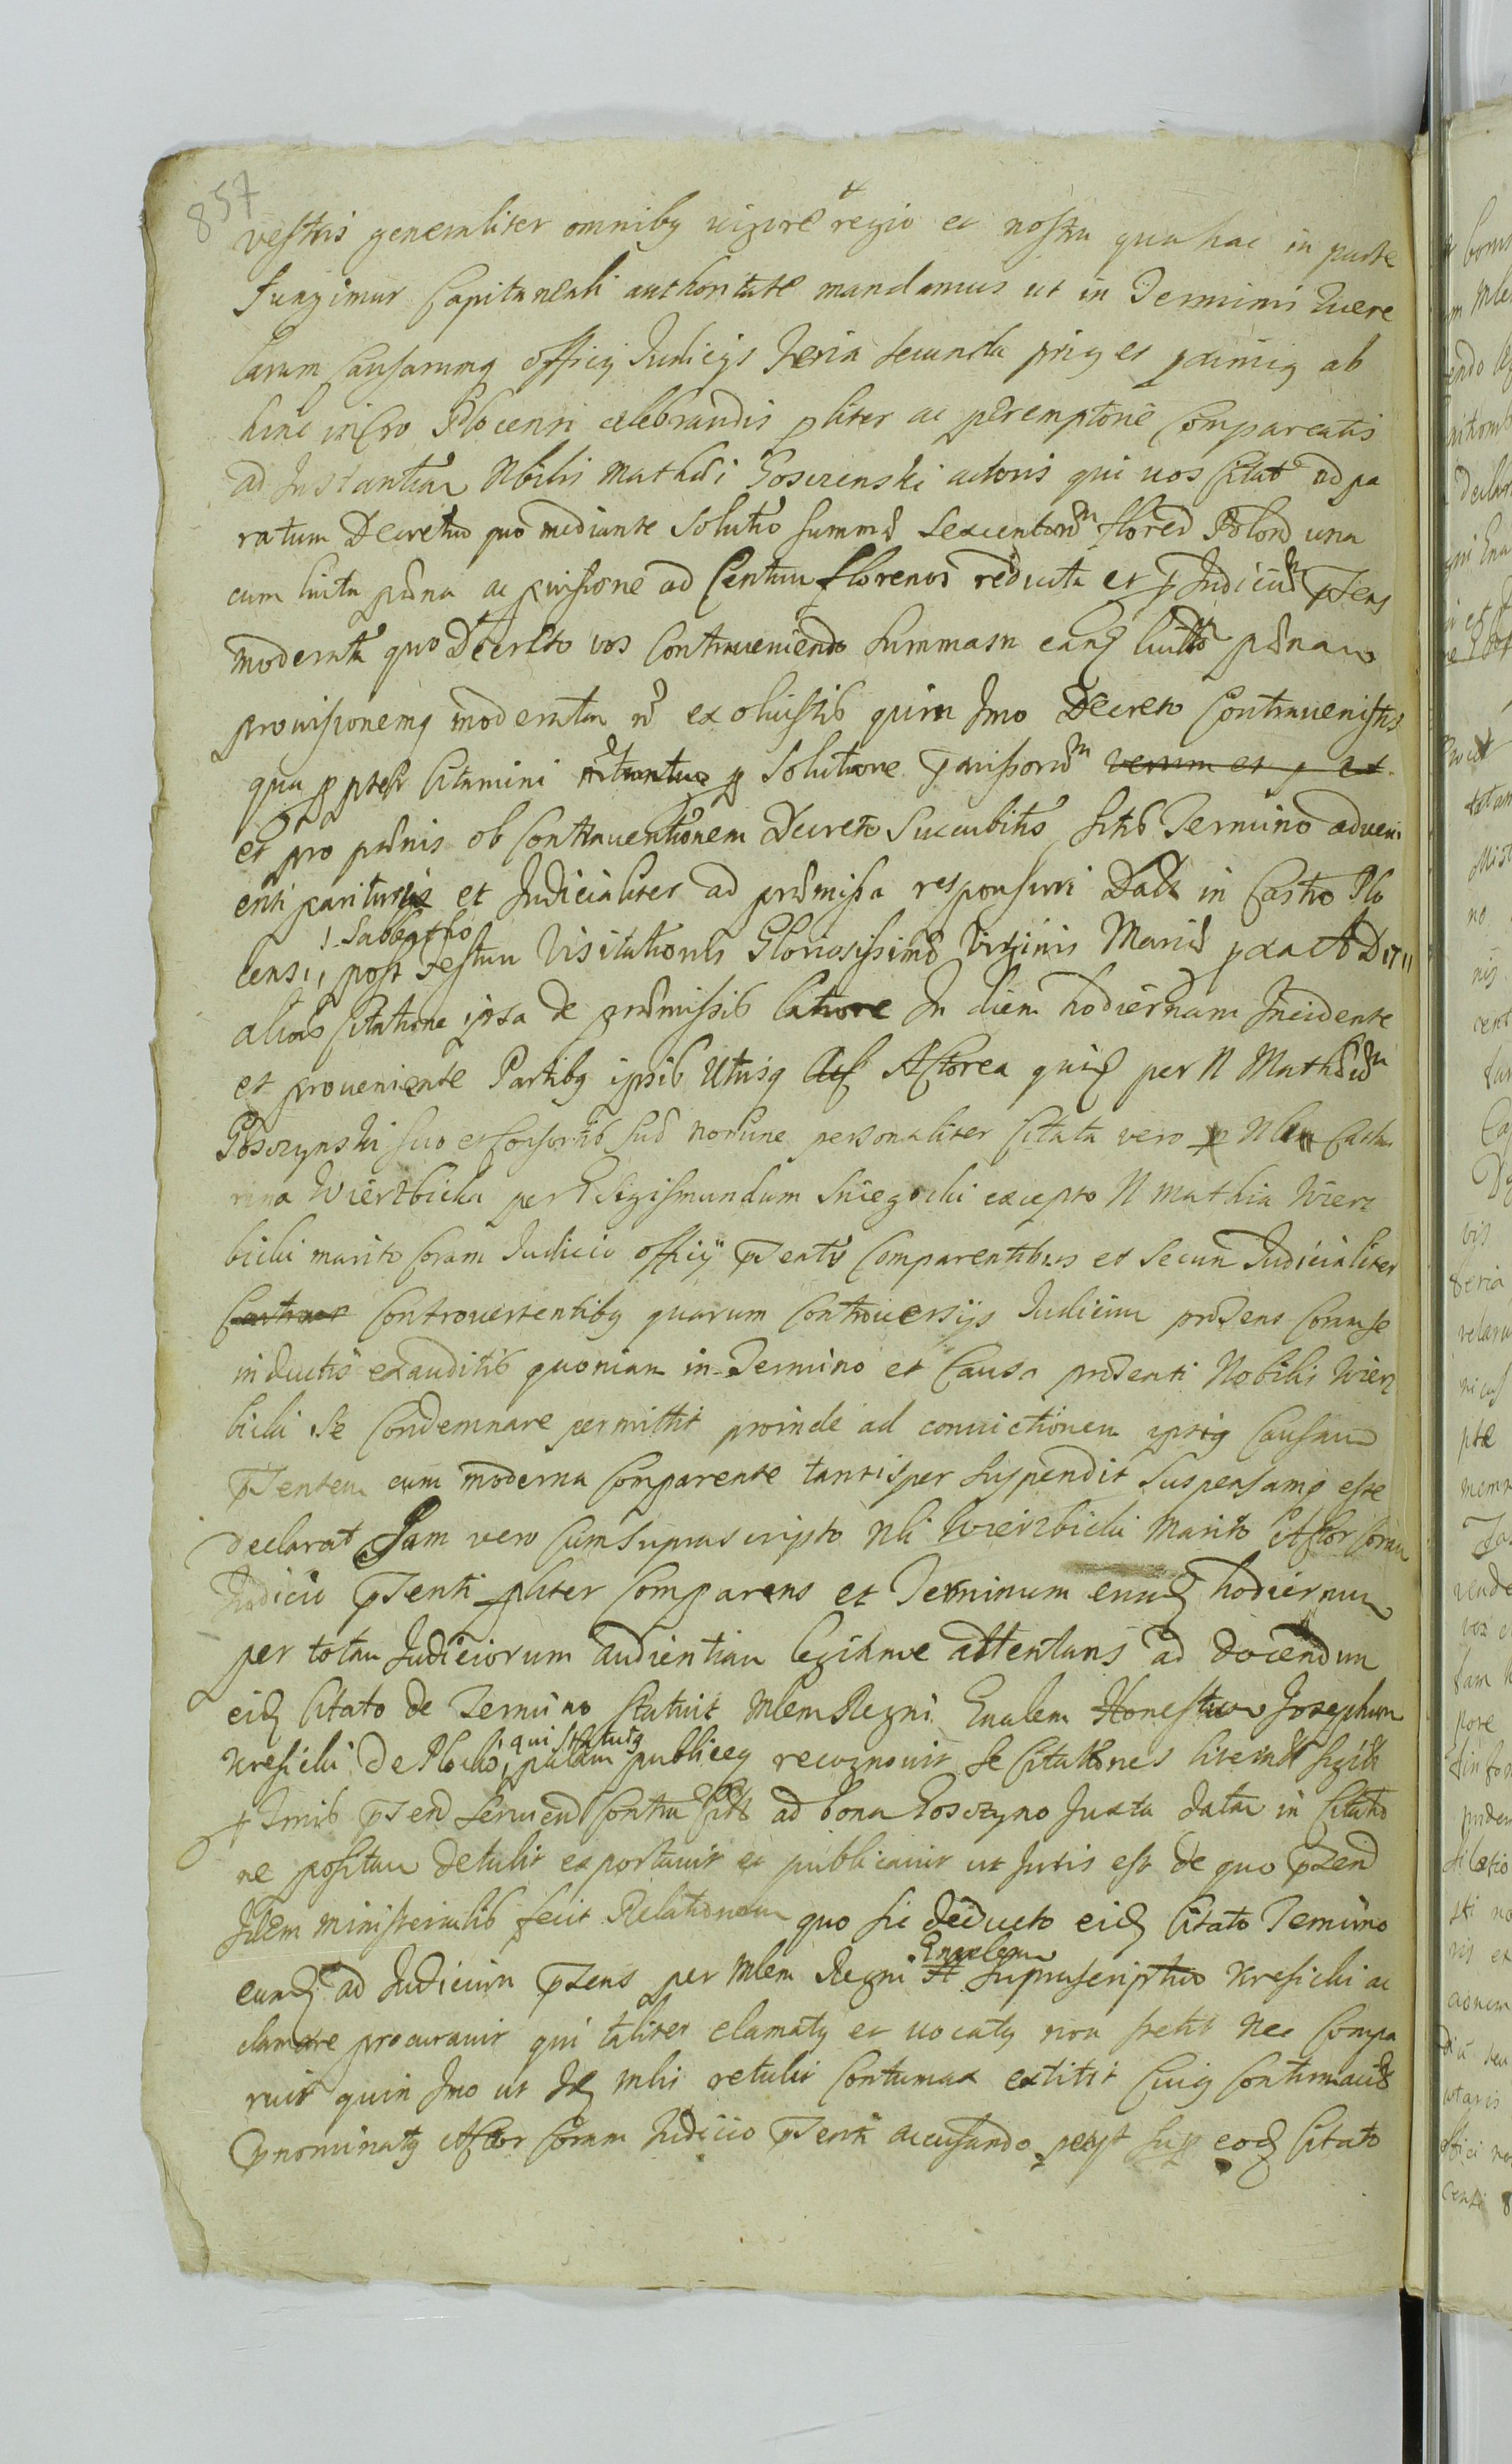 857
vestris generaliter omnibq uigore regio et nostra qua hac in parte
fungimur Capitaneali authoritate mandamus ut in Terminis Quere
larum Causarumq officij Judicijs Feria secunda priq et proximiq ab
hinc in Cro Plocensi celebrandis pliter ac peremptorie Compareatis
ad Instantiam Nbilis Mathei Gosczenski actoris qui uos Citat ad pa
ratum Decretum quo mediante Solutio Summæ Sexcentorum floren Polon una
cum luita pæna ac puisione ad Centum florenos reducta et p Judicium pſens
moderata quo Decreto vos Contraueniendo Summam eanq luitam pænam
prouisionemq moderatam n exoluistis quin Imo Decreto Contrauenistis
qua ppter Citamini p Solutione pmissorum verum et p
et pro pænis ob Contrauentionem Decreto Succubitis sitis Termino adueni
enti parituri et Judicialiter ad præmissa responsuri Datt in Castro Plo
censi, Sabbatho post Festum Visitationis Gloriosissimæ Virginis Mariæ pxa A D 1711
alias Citatione ipsa de præmissis latiore In diem hodiernam Incidente
et proueniente Partibq ipsis Utrisq Actorea quid per N Mathæum
Gosczynski suo et Consortis suæ nomine personaliter Citata vero Nlem Catha
rina Wierzbicka per G Sigismundum Sniegocki excepto N Mathia Wierz
bicki marito Coram Judicio officij pſenti Comparentibus et Secum Judicialiter
Controuertentibq quarum Controuersijs Judicium prædens Coram se
inductis exauditis quoniam in Termino et Causa prædenti Nobilis Wierz
bicki Se Condemnare permittit proinde ad conuictionem ipsiq Causam
pſentem cum moderna Comparente tantisper Suspendit Suspensamq esse
declarat Jam vero Cum suprascripto Nli Wierzbicki Marito Actor Coram
Judicio pſenti pliter Comparens et Terminum eund hodiernum
per totam Judiciorum audientiam legitime attentans ad docendum
eid Citato de Termino statuit Mlem Regni Gnalem Honestum Josephum
Kresicki de Plocko, qui statutq palam publiceq recognouit se Citationes literales sigill
+ Imis pſen Seruien Contra Cit ad bona Gosczyno Juxta datam in Citatio
ne positam detulit exportauit et publicauit ut Juris est de quo pſend
Idem ministerialis fecit Relationem quo sic deducto eid Citato Termino
eund ad Judicium pſens per Mlem Regni Gnalem Suprascriptum Kresicki ac
clamare procurauit qui taliter clamatq et uocatq non stetit nec Compa
ruit quin Imo ut Id Mlis retulit Contumax extitit Cuiq Contumaciæ
pnominatq Actor Coram Judicio pſenti accusando petijt sup eod Citato